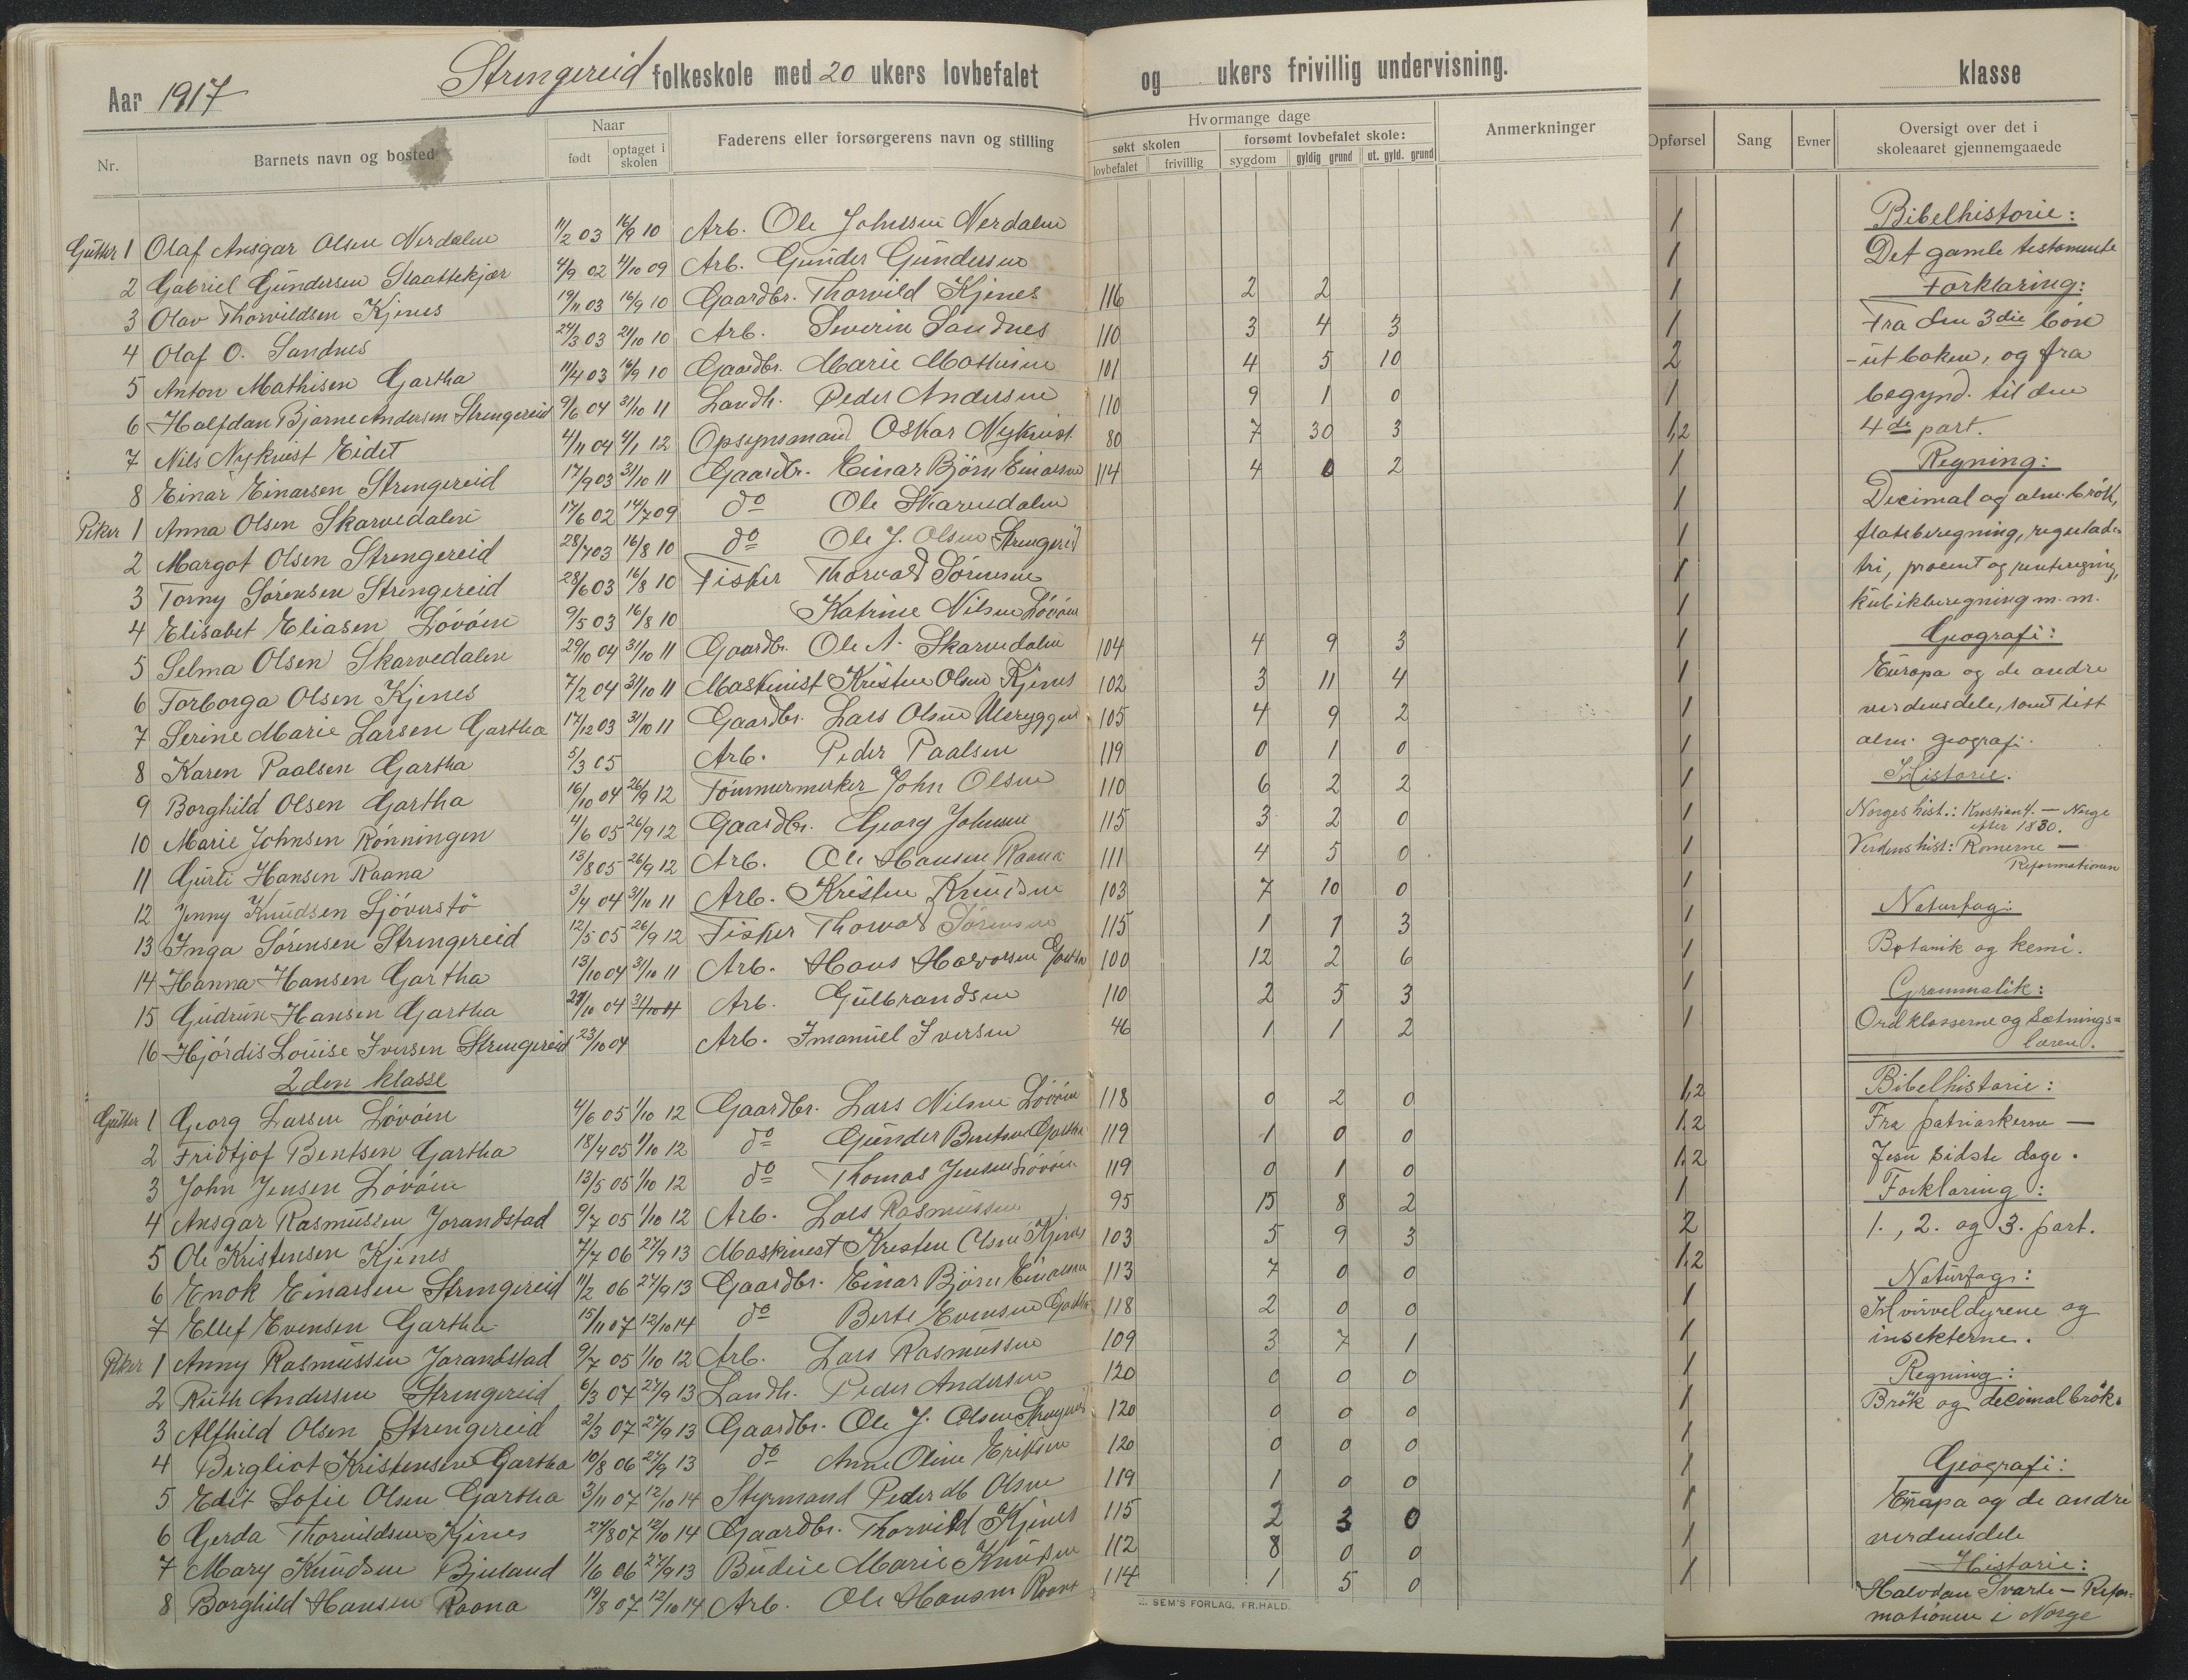 Strengereid folkeskole med 20 ukers lovbefalet og ukers frivillig undervisning.
klasse
Aar 1917
Nr. Barnets navn og bosted Naar født optaget i skolen Faderens eller forsørgerens navn og stilling Hvormange dage søkt skolen lovbefalet frivillig forsømt lovbefalet skole: sygdom gyldig grund ut. gyld. grund Anmerkninger
Opførsel Sang Evner Oversigt over det i skoleaaret gjennemgaaede
Gutter 1 Olaf Ansgar Olsen Nerdalen 11/2 03 16/9 10 Arb. Ole Johnsen Nerdalen 1
2 Gabriel Gundersen Slaattekjær 4/9 02 4/10 09 Arb. Gunder Gundersen 1
3 Olav Thorvildsen Kjenes 19/11 03 16/9 10 Gaardbr. Thorvild Kjenes 116 2 2 1
4 Olaf O. Sandnes 24/3 03 21/10 10 Arb. Severin Sandnes 110 3 4 3 1
5 Anton Mathisen Gartha 11/4 03 16/9 10 Gaardbr. Marie Mathisen 101 4 5 10 2
6 Halfdan Bjarne Andersen Strengereid 9/6 04 31/10 11 Landh. Peder Andersen 110 9 1 0 1
7 Nils Nykvist Eidet 4/11 04 4/1 12 Opsynsmand Oskar Nykvist 80 7 30 3 1,2
8 Einar Einarsen Strengereid 17/9 03 31/10 11 Gaardbr. Einar Bjørn Einarsen 114 4 0 2 1
Piker 1 Anna Olsen Skarvedalen 17/6 02 14/7 09 do Ole Skarvedalen 1
2 Margot Olsen Strengereid 28/7 03 16/8 10 do Ole J. Olsen Strengereid 1
3 Torny Sørensen Strengereid 28/6 03 16/8 10 Fisker Thorvald Sørensen 1
4 Elisabet Eliasen Løvøen 9/5 03 16/8 10 Katrine Nilsen Løvøen 1
5 Selma Olsen Skarvedalen 29/10 04 31/10 11 Gaardbr. Ole A. Skarvedalen 104 4 9 3 1
6 Torborga Olsen Kjenes 7/2 04 31/10 11 Maskinist Kristen Olsen Kjenes 102 3 11 4 1
7 Serine Marie Larsen Gartha 17/12 03 31/10 11 Gaardbr. Lars Olsen 105 4 9 2 1
8 Karen Paalsen Gartha 5/3 05 Arb. Peder Paalsen 119 0 1 0 1
9 Borghild Olsen Gartha 16/10 04 26/9 12 Tømmermerker John Olsen 110 6 2 2 1
10 Marie Johnsen Rønningen 4/6 05 26/9 12 Gaardbr. Georg Johnsen 115 3 2 0 1
11 Gurti Hansen Raana 13/8 05 26/9 12 Arb. Ole Hansen Raana 111 4 5 0 1
12 Jenny Knudsen Sjøverstø 3/4 04 31/10 11 Arb. Kristen Knudsen 103 7 10 0 1
13 Inga Sørensen Strengereid 12/5 05 26/9 12 Fisker Thorvald Sørensen 115 1 1 3 1
14 Hanna Hansen Gartha 13/10 04 31/10 11 Arb. Hans Halvorsen Gartha 100 12 2 6 1
15 Gudrun Hansen Gartha 29/10 04 31/10 11 Arb. Gulbrandsen 110 2 5 3 1
16 Hjørdis Louise Iversen Strengereid 23/10 04 Arb. Imanuel Iversen 46 1 1 2 1
2den klasse
Gutter 1 Georg Larsen Løvøen 4/6 05 1/10 12 Gaardbr. Lars Nilsen Løvøen 118 0 2 0 1,2
2 Fridtjof Bentsen Gartha 18/4 05 1/10 12 do Gunder Bentsen Gartha 119 1 0 0 1,2
3 John Jensen Løvøen 13/5 05 1/10 12 do Thomas Jensen Løvøen 119 0 1 0 1,2
4 Ansgar Rasmussen Jorandstad 9/7 05 1/10 12 Arb. Lars Rasmussen 95 15 8 2 1
5 Ole Kristensen Kjenes 7/7 06 27/9 13 Maskinest Kresten Olsen Kjenes 103 5 9 3 2
6 Enok Einarsen Strengereid 11/2 06 27/9 13 Gaardbr. Einar Bjørn Einarsen 113 7 0 0 1,2
7 Ellef Evensen Gartha 15/11 07 12/10 14 do Berte Evensen Gartha 118 2 0 0 1
Piker 1 Anny Rasmussen Jorandstad 9/7 05 1/10 12 Arb. Lars Rasmussen 109 3 7 1 1
2 Ruth Andersen Strengereid 6/3 07 27/9 13 Landh. Peder Andersen 120 0 0 0 1
3 Alfhild Olsen Strengereid 2/3 07 27/9 13 Gaardbr. Ole J. Olsen Strengereid 120 0 0 0 1
4 Bergliot Kristensen Gartha 10/8 06 27/9 13 do Anne Oline Eriksen 120 0 0 0 1
5 Edit Sofie Olsen Gartha 3/11 07 12/10 14 Styrmand Peder M Olsen 119 1 0 0 1
6 Gerda Thorvildsen Kjenes 24/8 07 12/10 14 Gaardbr. Thorvild Kjenes 115 2 3 0 1
7 Mary Knudsen Bjeland 1/6 06 27/9 13 Budeie Marie Knudsen 112 8 0 0 1
8 Borghild Hansen Raana 19/8 07 12/10 14 Arb. Ole Hansen Raana 114 1 5 0 1
SEM'S FORLAG, FR.HALD.
Bibelhistorie:
Det gamle testamente
Forklaring:
Fra den 3die bøn
- ut boken, og fra
begynd. til den
4de part.
Regning:
Decimal og alm. brøk,
flateberegning, reguladetri,
procent og renteregning,
kubikberegning m.m.
Geografi:
Europa og de andre
verdensdele, samt litt
alm. geografi.
Historie.
Norges hist.: Kristian 4. — Norge
efter 1830.
Verdens hist: Romerne —
Reformationen
Naturfag:
Botanik og kemi.
Grammatik:
Ordklasserne og Sætnings=
læren.
Bibelhistorie:
Fra patriarkerne —
Jesu sidste dage.
Forklaring:
1., 2. og 3. part.
Naturfag:
Hvirveldyrene og
insekterne.
Regning:
Brøk og decimalbrøk.
Geografi:
Europa og de andre
verdensdele
Historie:
Halvdan Svarte - Refor=
mationen i Norge